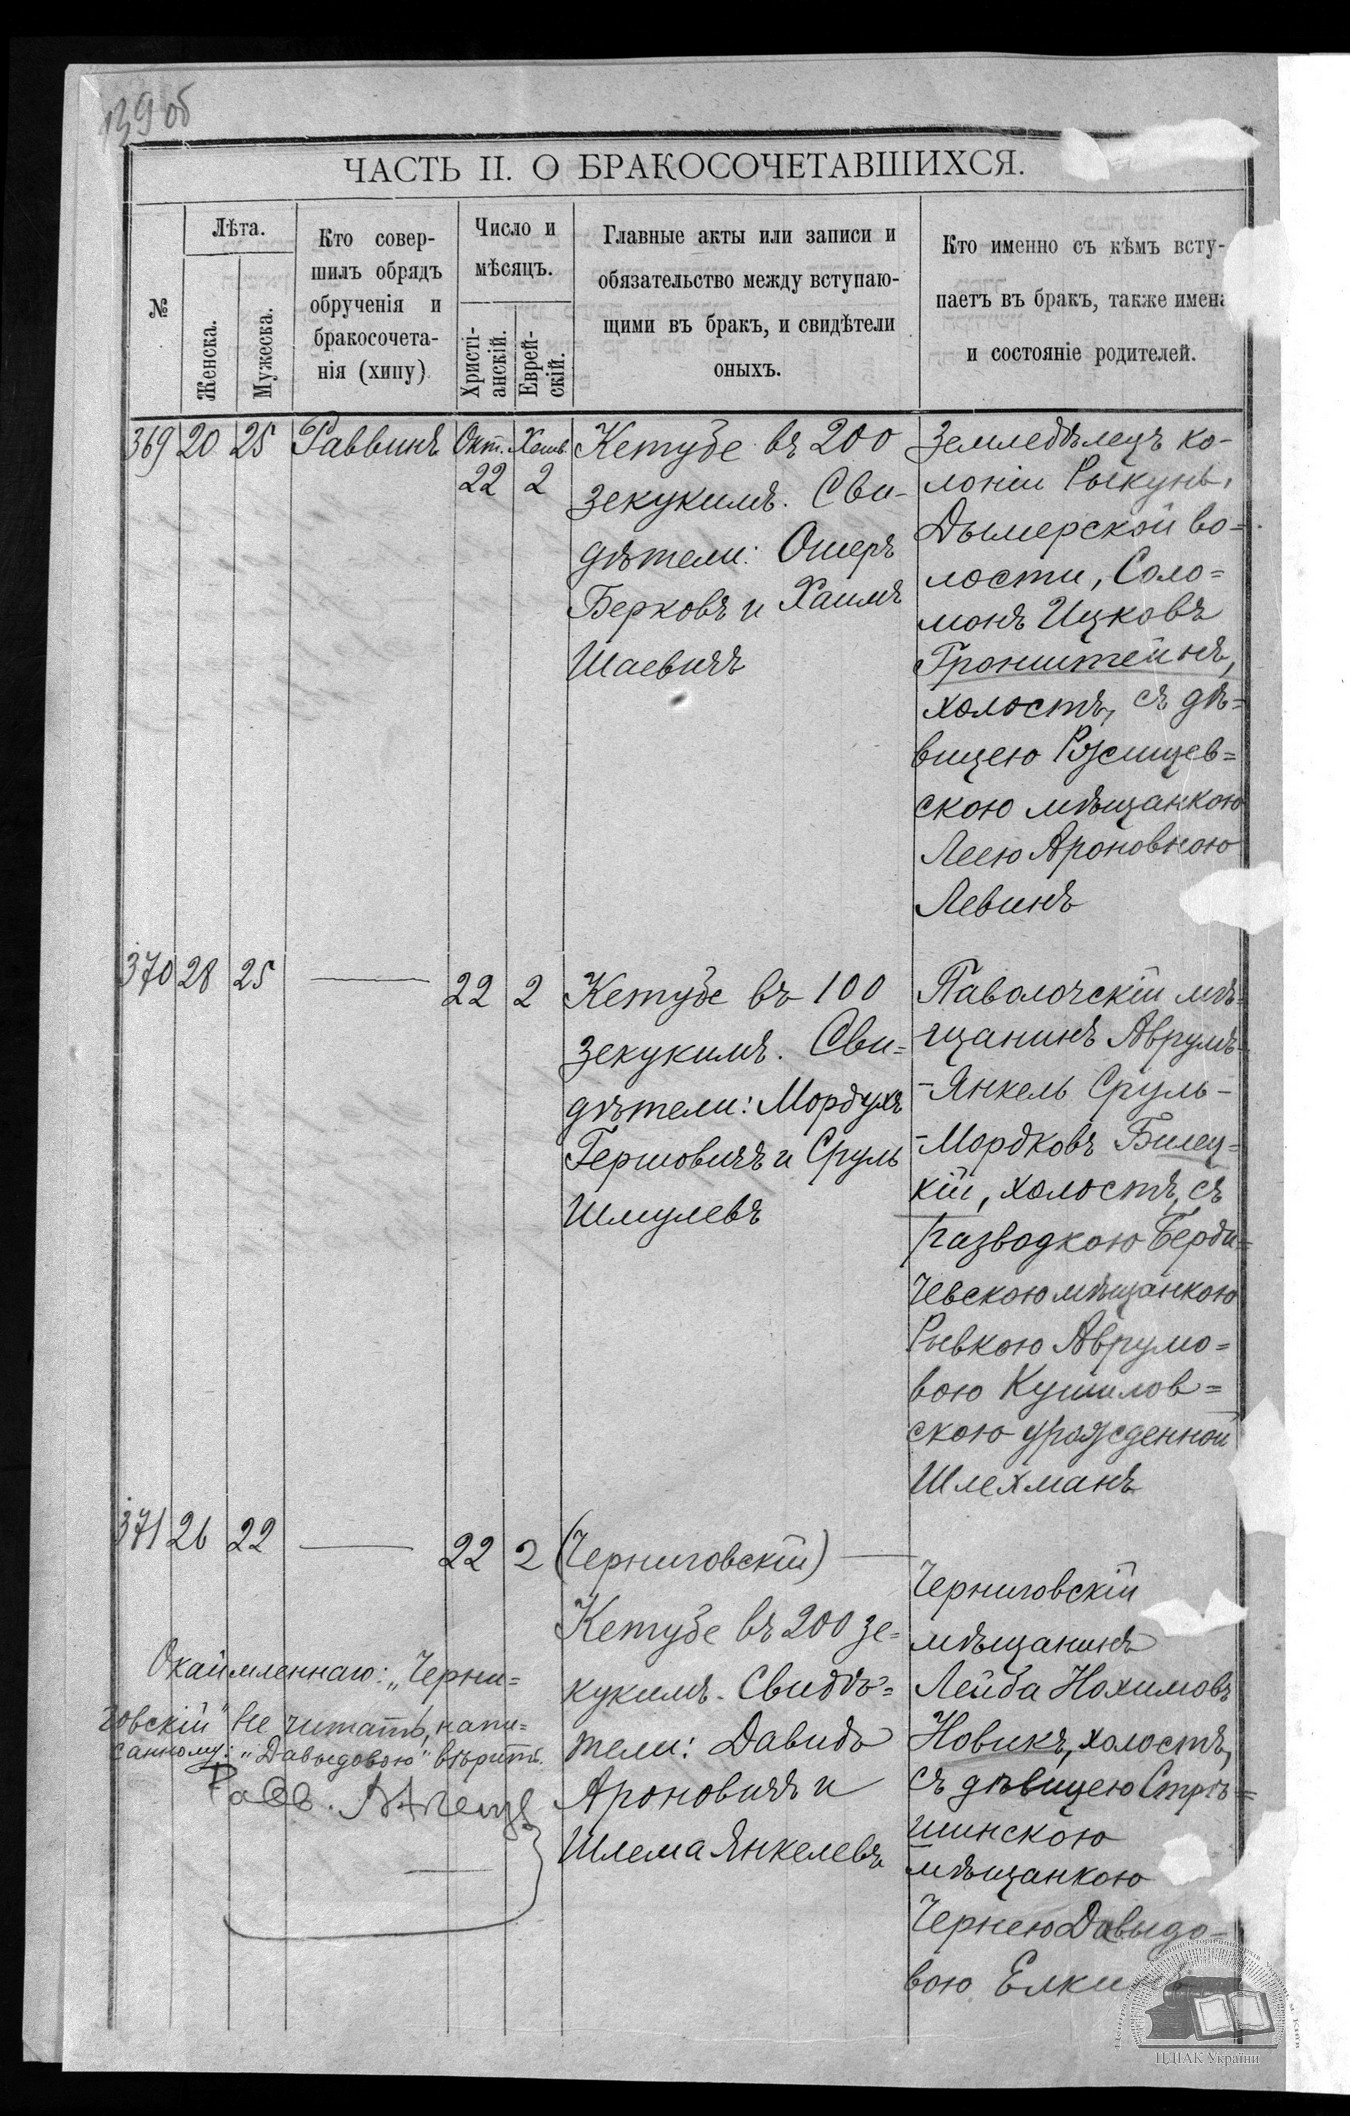 139 об
ЧАСТЬ II. О БРАКОСОЧЕТАВШИХСЯ.
№
Лѣта.
Женска.
Мужеска.
Кто совер-
шилъ обрядъ
обрученія и
бракосочета-
нія (хипу)
Число и
мѣсяцъ.
Христі-
анскій.
Еврей-
скій.
Главные акты или записи и
обязательство между вступаю-
щими въ бракъ, и свидѣтели
оныхъ.
Кто именно съ кѣмъ всту-
паетъ въ бракъ, также имена
и состояніе родителей.
369 20 25 Раввинъ Окт. 22 Хеш. 2
Кетубе въ 200
зекукимъ. Сви-
дѣтели: Ошеръ
Берковъ и Хаимъ
Шаевичъ
Земледѣлецъ ко-
лоніи Рыкунь,
Дымерской во=
лости, Соло=
монъ Ицковъ
Гронштейнъ,
холостъ, съ дѣ=
вицею Ржищев=
скою мѣщанкою
Леею Ароновною
Левинъ
370 28 25 — 22 2
Кетубе въ 100
зекукимъ. Сви=
дѣтели: Мордухъ
Гершовичъ и Сруль
Шмулевъ
Паволочскій мѣ=
щанинъ Аврумъ-
-Янкель Сруль-
-Мордковъ Билец=
кій, холостъ, съ
разводкою Берди=
чевскою мѣщанкою
Рывкою Аврумо=
вою Кушилов=
скою урожденной
Шлехманъ
371 26 22 — 22 2
(Черниговскій) —
Кетубе въ 200 зе=
кукимъ. Свидѣ=
тели: Давидъ
Ароновичъ и
Шлема Янкелевъ
Черниговскій
мѣщанинъ
Лейба Нохимовъ
Новикъ, холостъ,
съ дѣвицею Стрѣ=
шинскою
мѣщанкою
Чернею Давидо-
вою Елкинъ
Окаймленнаго: „Черни=
говскій" не читать, напи=
санному: „Давыдовою" вѣрить.
Равв.
ЦДІАК України